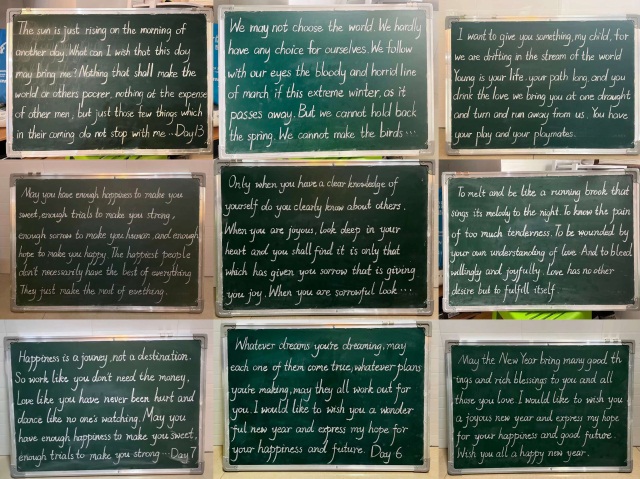 The sun is just rising on the morning of
another day. What can I wish that this day
may bring me? Nothing that shall make the
world or others poorer, nothing at the expense
of other men, but just those few things which
in their coming do not stop with me ··· Day13
We may not choose the world. We hardly
have any choice for ourselves. We follow
with our eyes the bloody and horrid line
of march if this extreme winter, as it
passes away. But we cannot hold back
the spring. We cannot make the birds ···
I want to give you something, my child, for
we are drifting in the stream of the world
Young is your life, your path long, and you
drink the love we bring you at one draught
and turn and run away from us. You have
your play and your playmates.
May you have enough happiness to make you
sweet, enough trials to make you strong,
enough sorrow to make you human, and enough
hope to make you happy. The happiest people
don't necessarily have the best of everything
They just make the most of evething.
Only when you have a clear knowledge of
yourself do you clearly know about others.
When you are joyous, look deep in your
heart and you shall find it is only that
which has given you sorrow that is giving
you joy. When you are sorrowful look ···
To melt and be like a running brook that
sings its melody to the night. To know the pain
of too much tenderness. To be wounded by
your own understanding of love. And to bleed
willingly and joyfully. Love has no other
desire but to fulfill itself.
Happiness is a jouney, not a destination.
So work like you don't need the money,
Love like you have never been hurt and
dance like no one's watching. May you
have enough happiness to make you sweet,
enough trials to make you strong ··· Day 7
Whatever dreams you're dreaming, may
each one of them come true, whatever plans
you're making, may they all work out for
you. I would like to wish you a wonder
ful new year and express my hope for
your happiness and future. Day 6
May the New Year bring many good th
ings and rich blessings to you and all
those you love. I would like to wish you
a joyous new year and express my hope
for your happiness and good future.
Wish you all a happy new year.